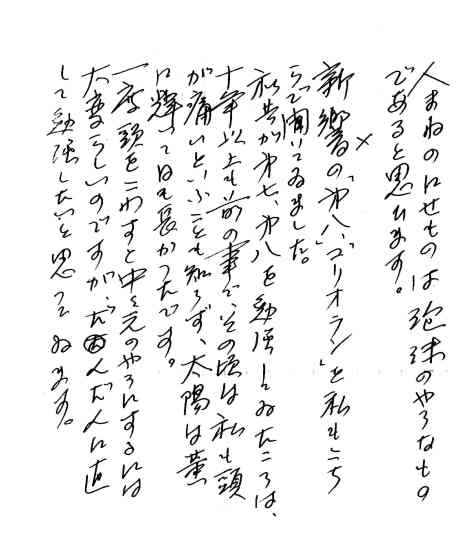 人まねのにせものは泡沫のやうなもの
であると思ひます。
×
新響の「第八、コリオラン」を私もこち
らで聞いてゐました。
私共が第七、第八を勉強してゐたころは、
十年以上も前の事でその頃は私も頭
が痛いといふことも知らず、太陽は薫
に輝いて日も長かつたです。
一度頭をこわすと中々元のやうにするには
大変らしいのですが、だんだんに直
して勉強したいと思つてゐます。